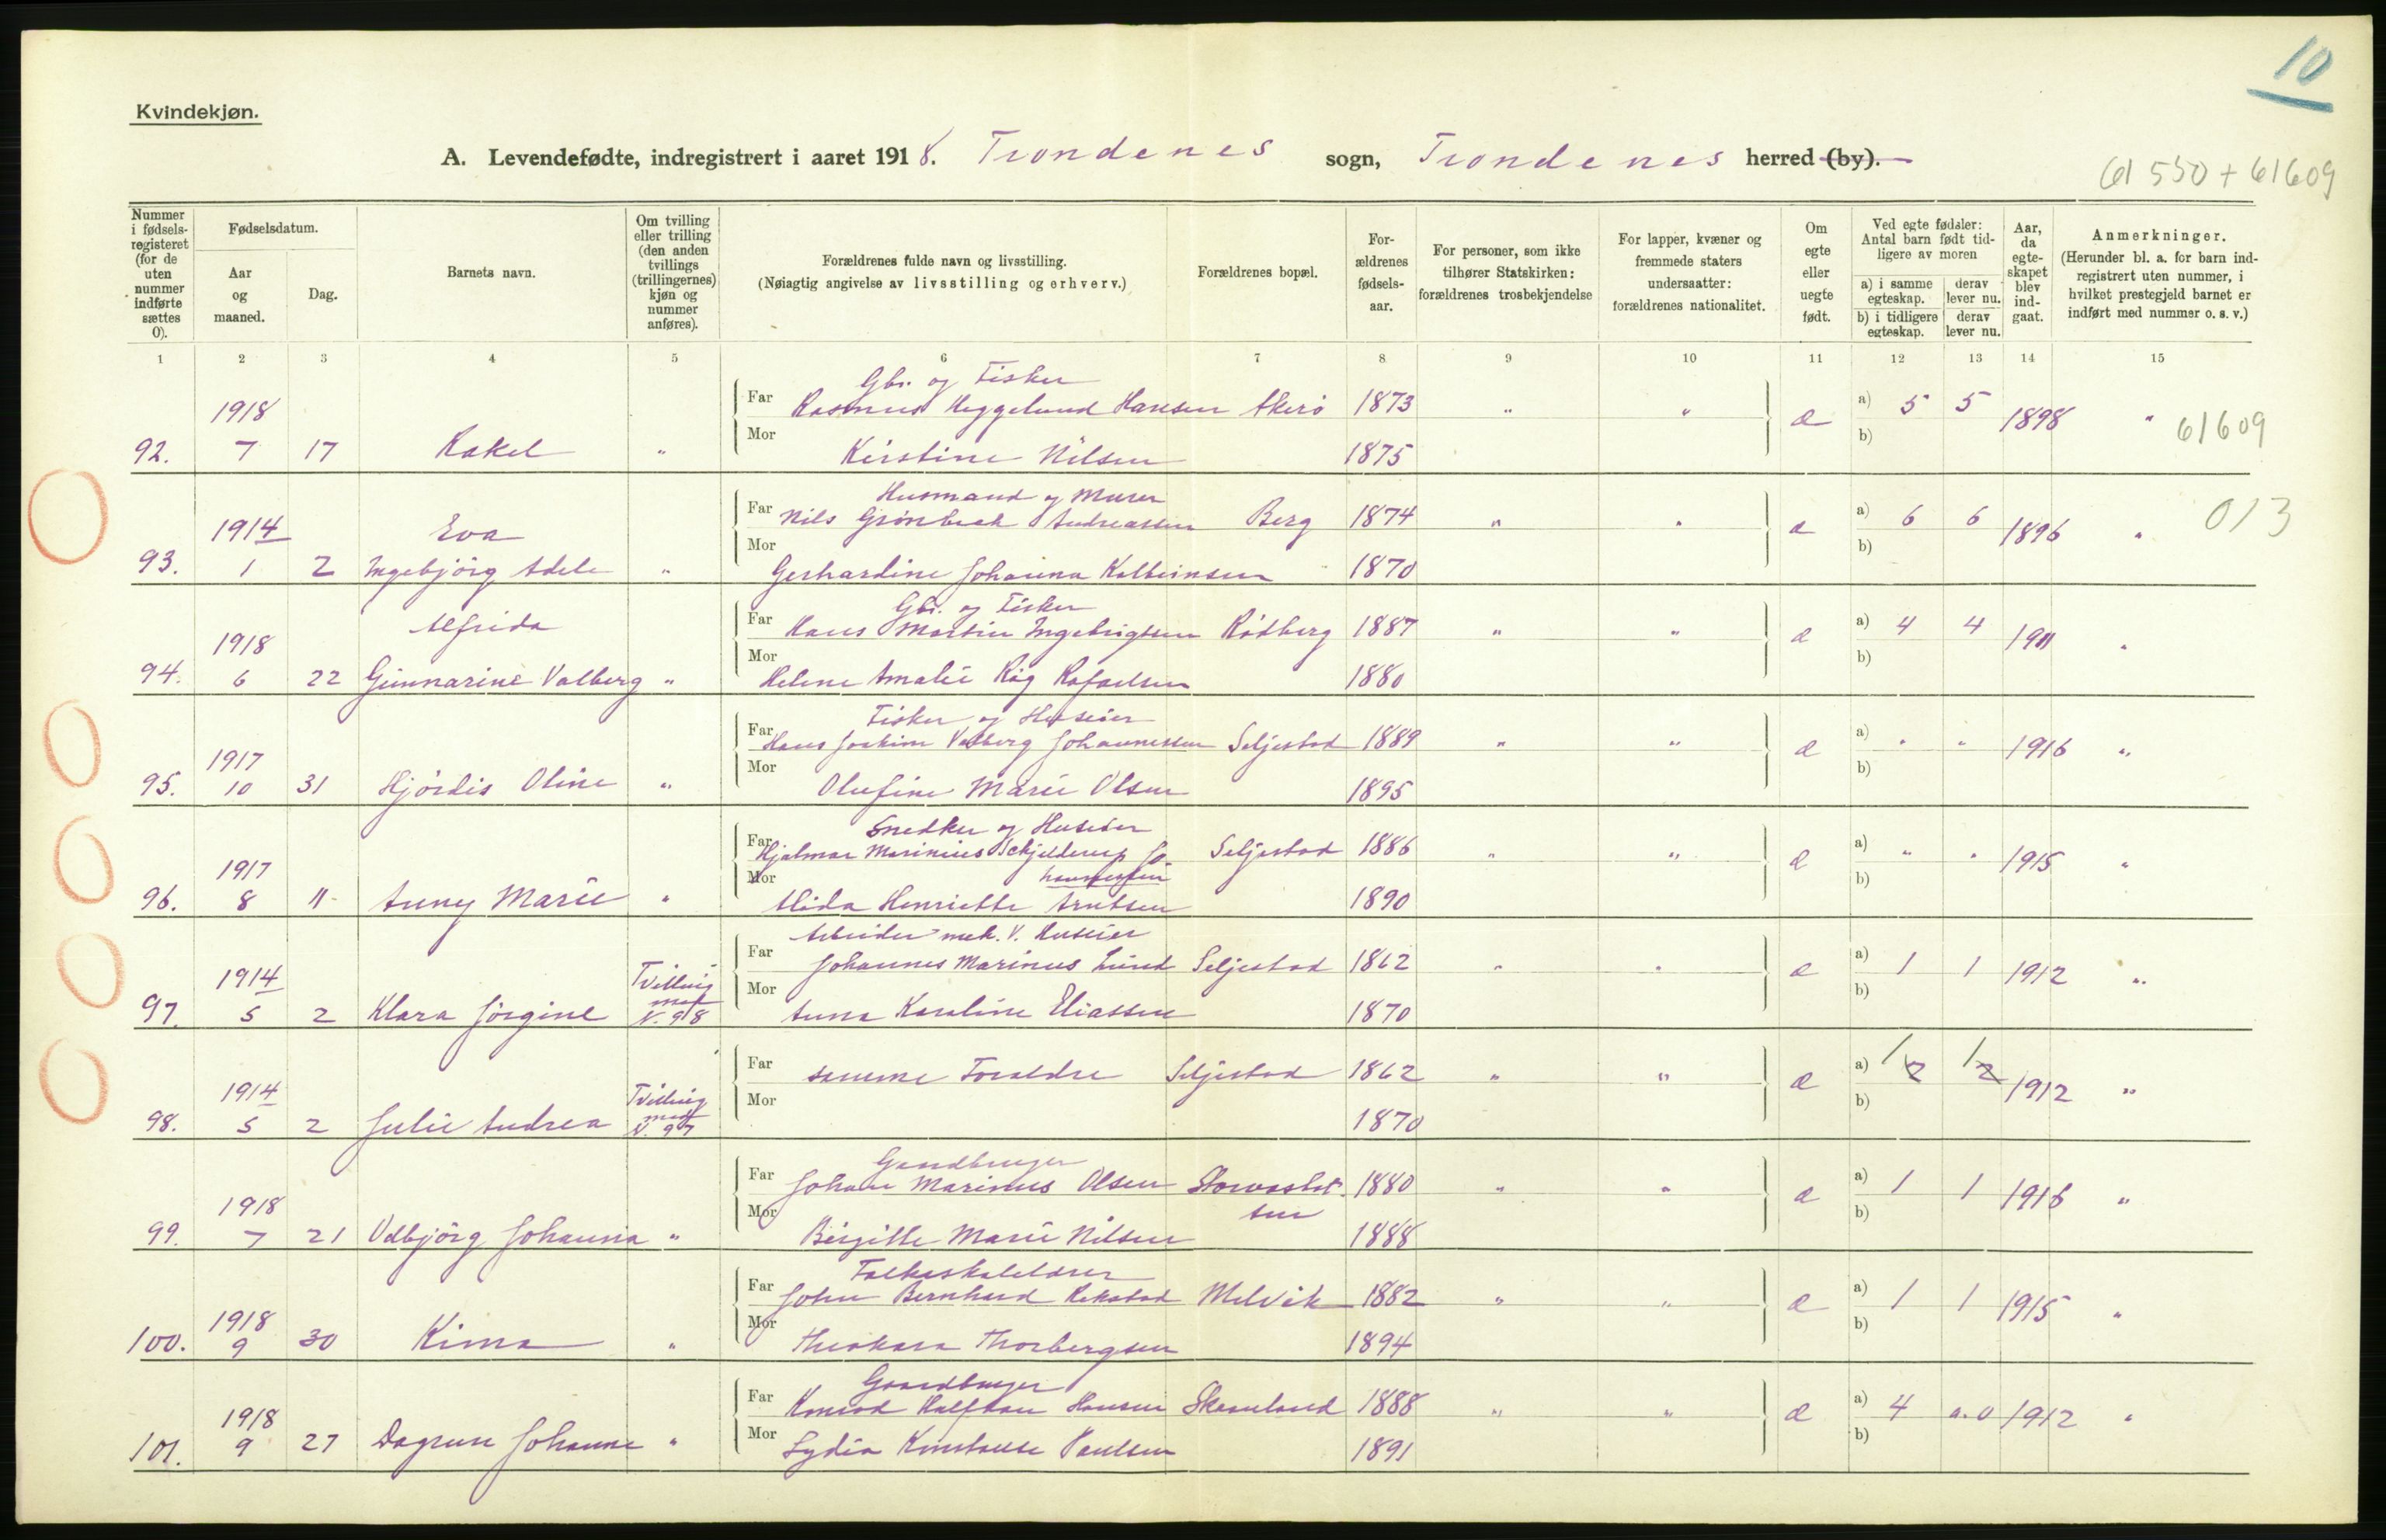 10
Kvindekjøn.
A. Levendefødte, indregistrert i aaret 1918. Trondenes sogn, Trondenes herred (by).
61550 + 61609
Nummer i fødsels-registeret (for de uten nummer indførte sættes 0).
Fødselsdatum.
Aar og maaned.
Dag.
Barnets navn.
Om tvilling eller trilling (den anden tvillings (trillingernes) kjøn og nummer anføres).
Forældrenes fulde navn og livsstilling.
(Nøiagtig angivelse av livsstilling og erhverv.)
Forældrenes bopæl.
For-ældrenes fødsels-aar.
For personer, som ikke tilhører Statskirken: forældrenes trosbekjendelse
For lapper, kvæner og fremmede staters undersaatter: forældrenes nationalitet.
Om egte eller uegte født.
Ved egte fødsler: Antal barn født tid-ligere av moren
a) i samme egteskap. derav lever nu.
b) i tidligere egteskap. derav lever nu.
Aar, da egte-skapet blev ind-gaat.
Anmerkninger.
(Herunder bl. a. for barn ind-registrert uten nummer, i hvilket prestegjeld barnet er indført med nummer o. s. v.)
1 2 3 4 5 6 7 8 9 10 11 12 13 14 15
Gbr. og Fisker
1918 Far Rasmus Heggelund Hansen Akerö 1873 " " æ a) 5 5 1898 " 61609
92. 7 17 Rakel " Mor Kirstine Nilsen 1875 b)
Husmand og Murer
1914 Eva Far Nils Grönbech Andreassen Berg 1874 " " æ a) 6 6 1896 " 013
93. 1 2 Ingebjörg Adele " Mor Gerhardine Johanna Kolbeinsen 1870 b)
Gbr. og Fisker
1918 Alfrida Far Hans Martin Ingebrigtsen Rödberg 1887 " " æ a) 4 4 1911 "
94. 6 22 Gunnarine Valberg " Mor Helene Amalie Rafaelsen 1880 b)
Fisker og Huseier
1917 Far Hans Joakim Valberg Johannessen Seljestad 1889 " " æ a) " " 1916 "
95. 10 31 Hjördis Oline " Mor Olufine Marie Olsen 1895 b)
Snedker og Huseier
1917 Far Hjalmar Marinius Schjelderup Jo- Seljestad 1886 " " æ a) " " 1915 "
hannessen
96. 8 11 Anny Marie " Mor Alida Henriette Arntsen 1890 b)
Arbeider mek. V. Huseier
1914 Tvilling Far Johannes Marinus Lund Seljestad 1862 " " æ a) 1 1 1912 "
97. 5 2 Klara Jörgine med N. 98 Mor Anna Karoline Eliassen 1870 b)
1914 Tvilling Far samme Forældre Seljestad 1862 " " æ a) 1 2 1 2 1912 "
98. 5 2 Julie Andrea med N. 97 Mor 1870 b)
Gaardbruger
1918 Far Johan Marinus Olsen 1880 " " æ a) 1 1 1916 "
99. 7 21 Valbjörg Johanna " Mor Birgitte Marie Nilsen 1888 b)
Folkeskolelærer
1918 Far John Bernhard Rekstad Melvik 1882 " " æ a) 1 1 1915 "
100. 9 30 Kima " Mor Theokara Thorbergsen 1894 b)
Gaardbruger
1918 Far Konrad Halfdan Hansen Skaanland 1888 " " æ a) 4 a.0 1912 "
101. 9 27 Dagrun Johanne " Mor Lydia Konstanse Paulsen 1891 b)